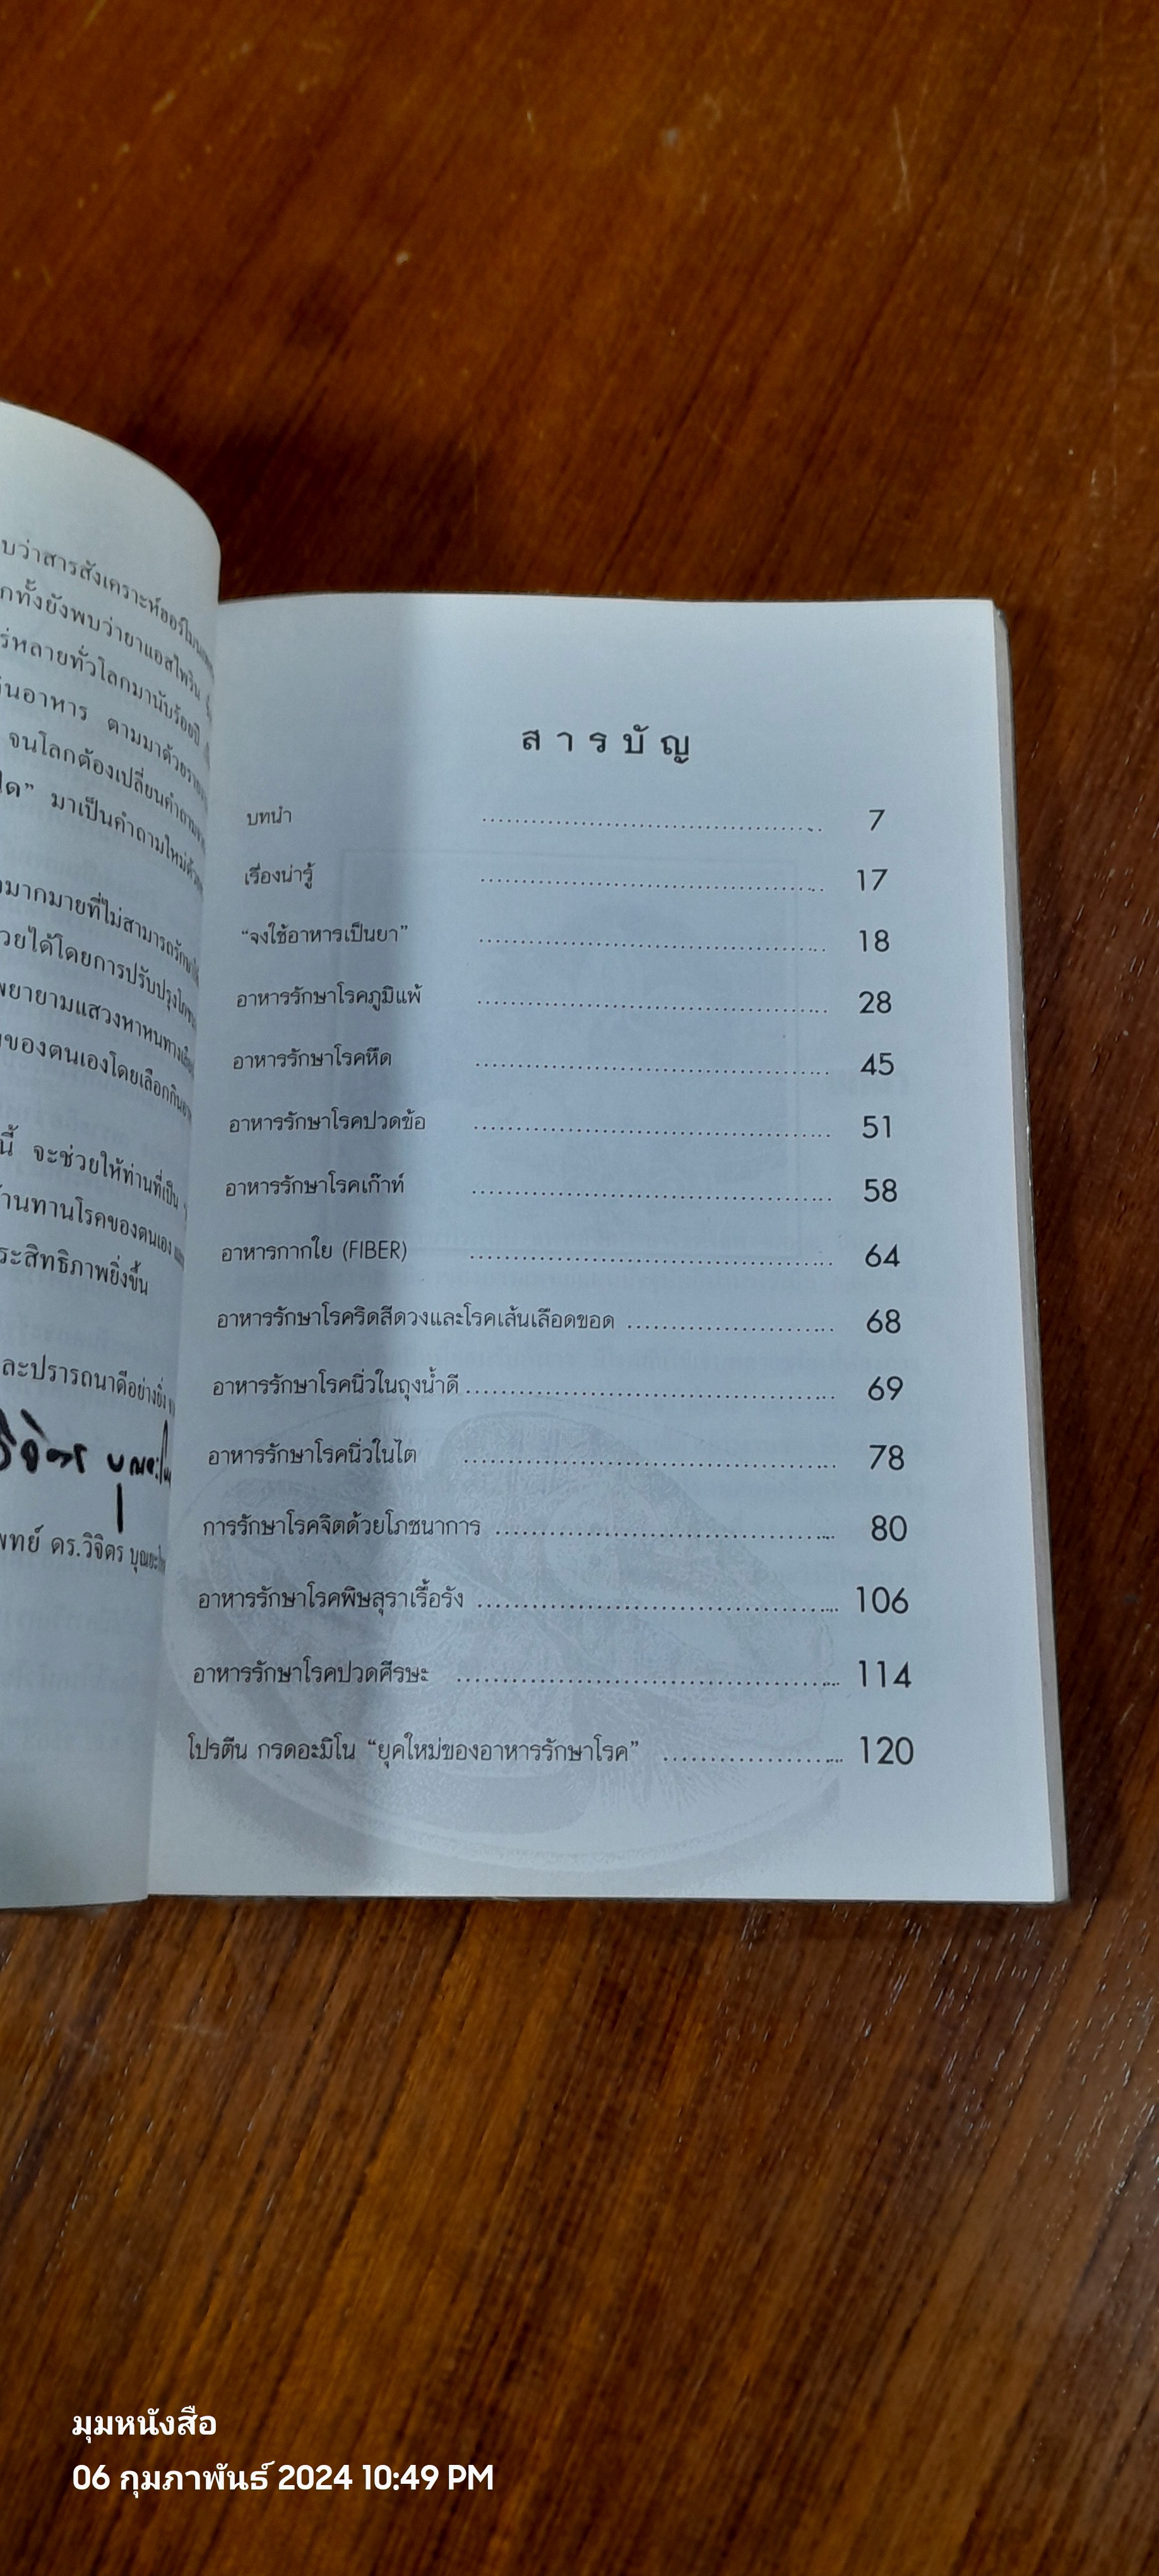 บว่าสารสังเคราะห์ฮอร์โมน
กทั้งยังพบว่ายาแอสไพริน
ร่หลายทั่วโลกมานับร้อยปี
นอาหาร ตามมาด้วย
จนโลกต้องเปลี่ยนคำถาม
ใด” มาเป็นคำถามใหม่
มากมายที่ไม่สามารถรักษา
วยได้โดยการปรับปรุง
พยายามแสวงหาหนทาง
ของตนเองโดยเลือกกิน
นี้ จะช่วยให้ท่านที่เป็น
้านทานโรคของตนเอง
ระสิทธิภาพยิ่งขึ้น
ละปรารถนาดีอย่างยิ่ง
วิจิตร บุณยะ
พทย์ ดร.วิจิตร บุณยะ
สารบัญ
บทนำ ........................................ 7
เรื่องน่ารู้ ........................................ 17
“จงใช้อาหารเป็นยา” ........................................ 18
อาหารรักษาโรคภูมิแพ้ ........................................ 28
อาหารรักษาโรคหืด ........................................ 45
อาหารรักษาโรคปวดข้อ ........................................ 51
อาหารรักษาโรคเก๊าท์ ........................................ 58
อาหารกากใย (FIBER) ........................................ 64
อาหารรักษาโรคริดสีดวงและโรคเส้นเลือดขอด ........................ 68
อาหารรักษาโรคนิ่วในถุงน้ำดี ........................................ 69
อาหารรักษาโรคนิ่วในไต ........................................ 78
การรักษาโรคจิตด้วยโภชนาการ ........................................ 80
อาหารรักษาโรคพิษสุราเรื้อรัง ........................................ 106
อาหารรักษาโรคปวดศีรษะ ........................................ 114
โปรตีน กรดอะมิโน “ยุคใหม่ของอาหารรักษาโรค” ...................... 120
มุมหนังสือ
06 กุมภาพันธ์ 2024 10:49 PM